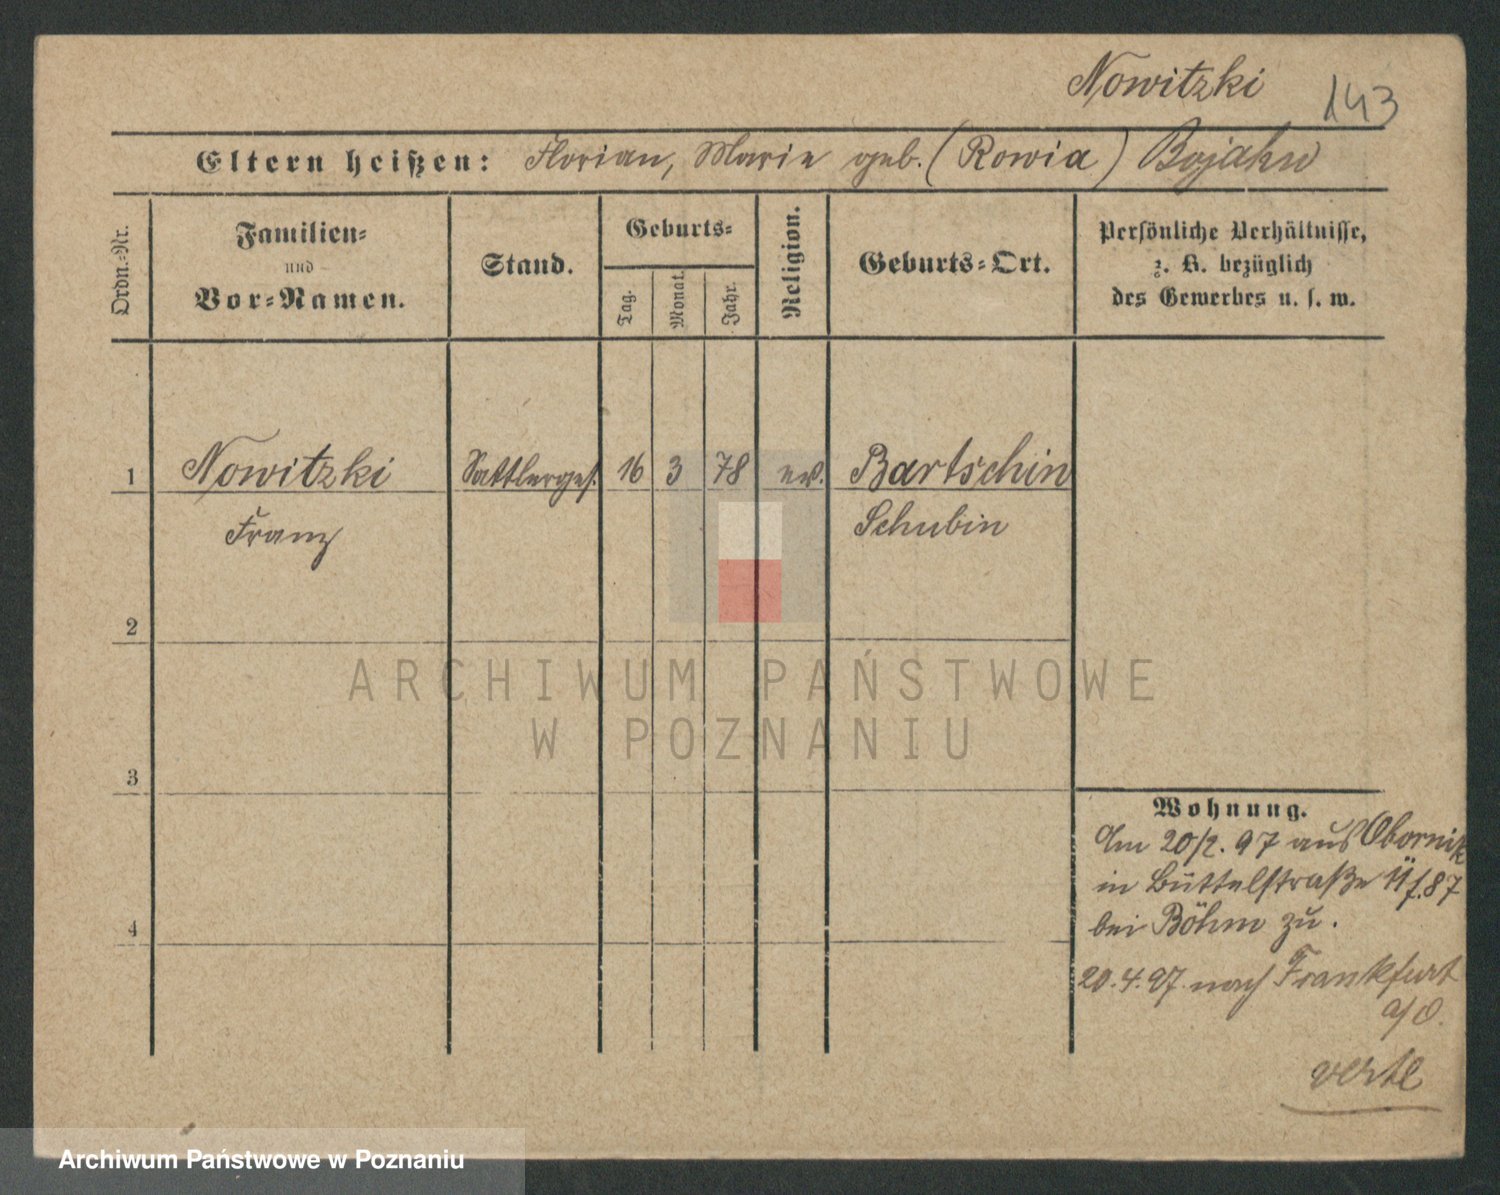 Nowitzki 143
Eltern heißen: Florian, Marie geb. (Rowia) Bojahn
Ordn.-Nr.
Familien-
und
Vor-Namen.
Stand.
Geburts-
Tag.
Monat.
Jahr.
Religion.
Geburts-Ort.
Persönliche Verhältnisse,
z. B. bezüglich
des Gewerbes u. s. w.
1 Nowitzki Sattlerges. 16 3 78 ev. Bartschin
Franz Schubin
2
3
4
Wohnung.
Am 20/2. 97 aus Obornik
in Büttelstraße 11 f. 87
bei Böhm zu.
20.4.97. nach Frankfurt
a/O.
verte
ARCHIWUM PAŃSTWOWE
W POZNANIU
Archiwum Państwowe w Poznaniu